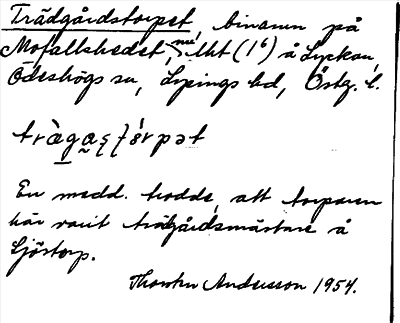 Trädgårdstorpet, binamn på
Mofallshedet, nu utht (1⁶) å Lyckan,
Ödeshögs sn, Lysings hd, Östg. l.
En medd. trodde, att torparen
här varit trädgårdsmästare å
Sjöstorp.
Thorsten Andersson 1954.